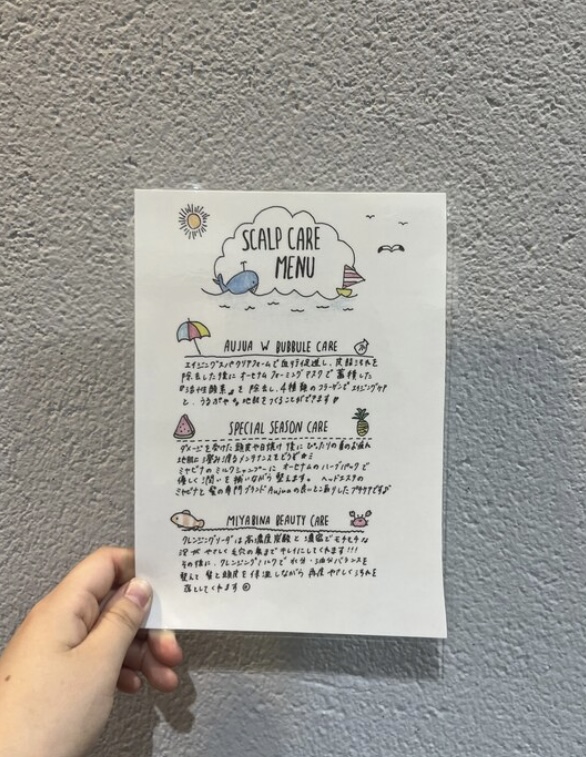 SCALP CARE
MENU
AUJUA W BUBBULE CARE
エイジングスパクリアフォームで血行促進し、皮脂汚れを
除去した後にオーセナム フォーミングマスクで蓄積した
『活性酸素』を除去し、4種類のコラーゲンでエイジングケア
と、うるおやかな地肌をつくることができます
SPECIAL SEASON CARE
ダメージを受けた頭皮や日焼け後にぴったりの夏のお疲れ
地肌に染み渡るメンテナンスをどうぞ
ミヤビナのミルクシャンプーにオーセナムのハーブパックで
優しく潤いを補いながら整えます。ヘッドエステの
ミヤビナと髪の専門ブランドAujuaの良いとこありしたプチケアです♪
MIYABINA BEAUTY CARE
クレンジングリーダは高濃度炭酸と濃密でモチモチな
泡がやさしく毛穴の奥までキレイにしてくれます!!!
その後に、クレンジングパックで水分・油分バランスを
整えて髪と頭皮を保湿しながら再度やさしく汚れを
落としてくれます